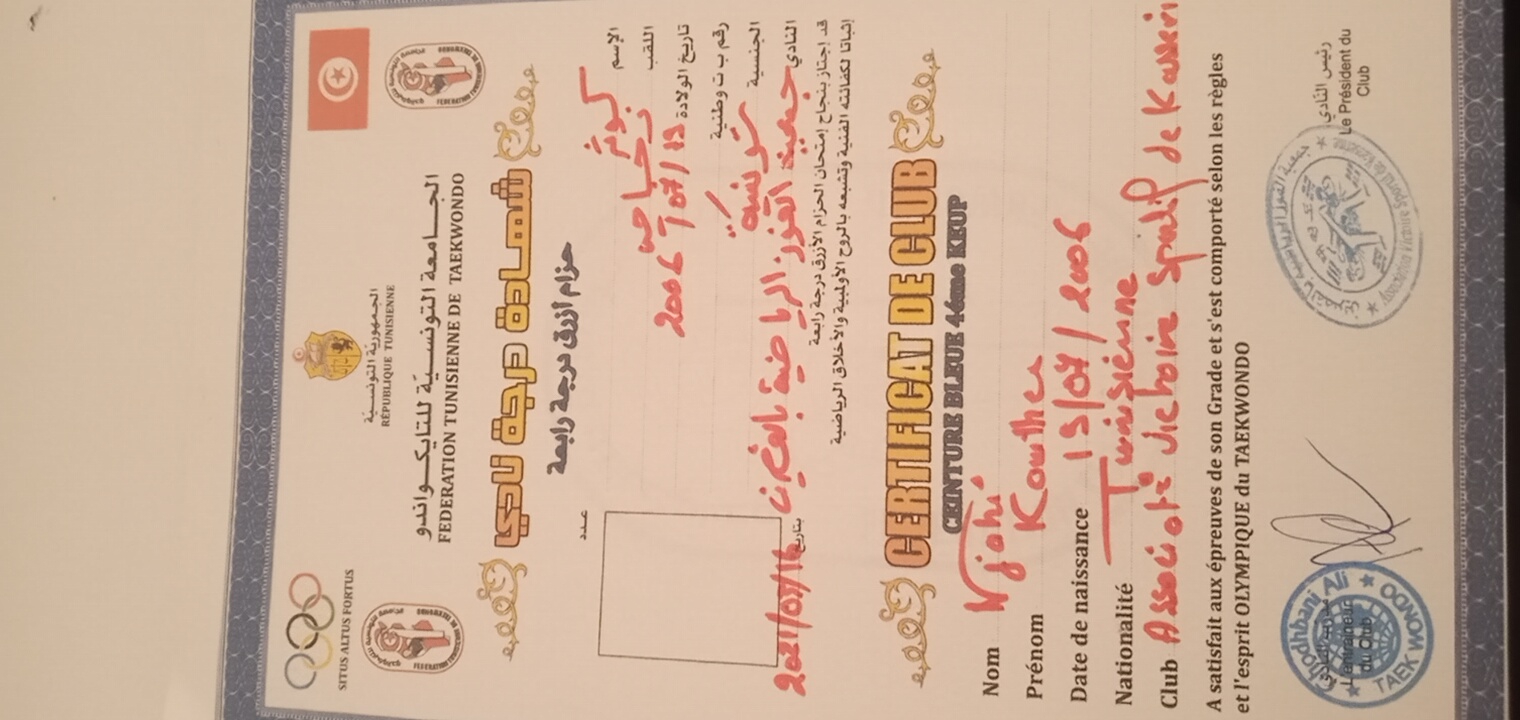 SITUS ALTUS FORTUS
الجمهورية التونسية
RÉPUBLIQUE TUNISIENNE
الجامعة التونسية للتايكواندو
FEDERATION TUNISIENNE DE TAEKWONDO
شهادة درجة نادي
حزام أزرق درجة رابعة
عدد
الإسم كوثر
اللقب
تاريخ الولادة 2006/07/13
رقم ب ت وطنية
الجنسية تونسية
النادي جمعية الفوز الرياضية بالقصرين بتاريخ 2021/07/16
قد إجتاز بنجاح إمتحان الحزام الأزرق درجة رابعة
إثباتا لكفائته الفنية وتشبعه بالروح الأولمبية والأخلاق الرياضية
CERTIFICAT DE CLUB
CEINTURE BLEUE 4éme KEUP
Nom Njahi
Prénom Kouther
Date de naissance 13/07/2006
Nationalité Tunisienne
Club
A satisfait aux épreuves de son Grade et s'est comporté selon les règles
et l'esprit OLYMPIQUE du TAEKWONDO
L'entraineur
du Club
Ghodhbani Ali
TAEKWONDO
رئيس النادي
Le Président du
Club